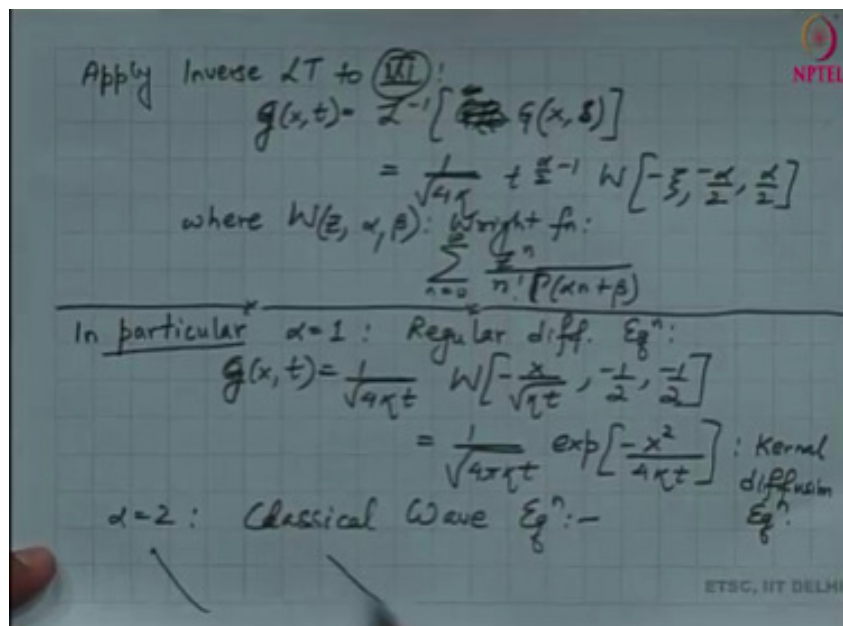 Apply Inverse LT to (III):
NPTEL
g(x,t) = L⁻¹[ G(x,s)]
= 1/√4η t^(α/2 -1) W[-ξ, -α/2, α/2]
where W(z, α, β): Wright fn:
∑_{n=0}^{∞} z^n / n! Γ(αn+β)
In particular α=1 : Regular diff. Eqⁿ:
g(x,t) = 1/√4ηt W[-x/√ηt, -1/2, -1/2]
= 1/√4πηt exp[-x²/4ηt] : Kernal
diffusion
Eqⁿ.
α=2 : Classical Wave Eqⁿ:-
ETSC, IIT DELHI